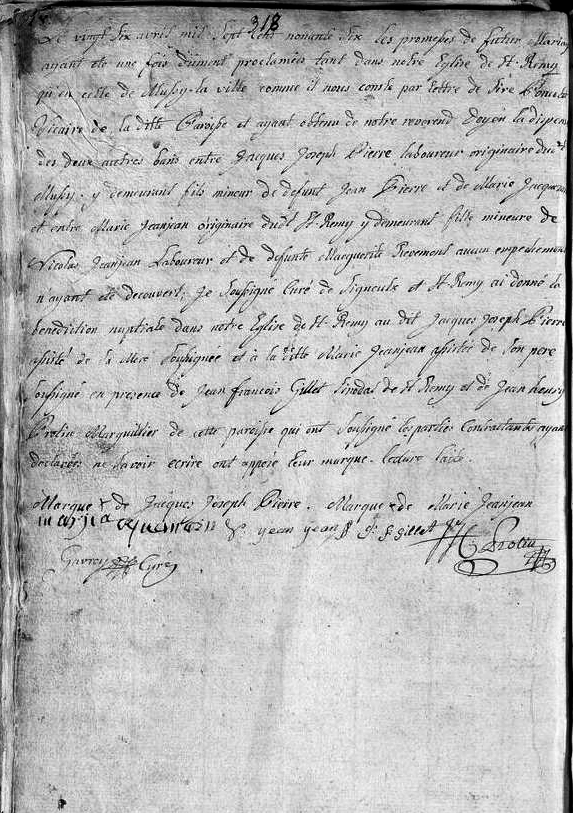 318
Le vingt six avril mil sept cent nonante six les promesses de futur Mariage
ayant été une fois dument proclamées tant dans notre Eglise de St-Remy
qu'en celle de Mussy-la ville comme il nous conste par lettre de Sire
Vicaire de la ditte Paroisse et ayant obtenu de notre reverend Doyen la dispense
des deux autres bans entre Jacques Joseph Pierre laboureur originaire dudt
Mussy y demeurant fils mineur de defunt Jean Pierre et de Marie Jacquemin
et entre Marie Jeanjean originaire dudt St-Remy y demeurant fille mineure de
Nicolas Jeanjean Laboureur et de defunte Marguerite Revemont aucun empechement
n'ayant été decouvert, Je soussigné Curé de Signeulx et St-Remy ai donné la
benediction nuptiale dans notre Eglise de St-Remy au dit Jacques Joseph Pierre
assisté de la Mere soussignée et à la ditte Marie Jeanjean assistée de son pere
soussigné en presence de Jean François Gillet Sinodal de St-Remy et de Jean henry
Protin Marguillier de cette paroisse qui ont soussigné les parties Contractantes ayant
declarées ne savoir ecrire ont apposé leur marque. lecture faite.
Marque x de Jacques Joseph Pierre. Marque x de Marie Jeanjean
maria jaquemin N. jean jean J. F. gillet H. Protin
Gavroy Curé